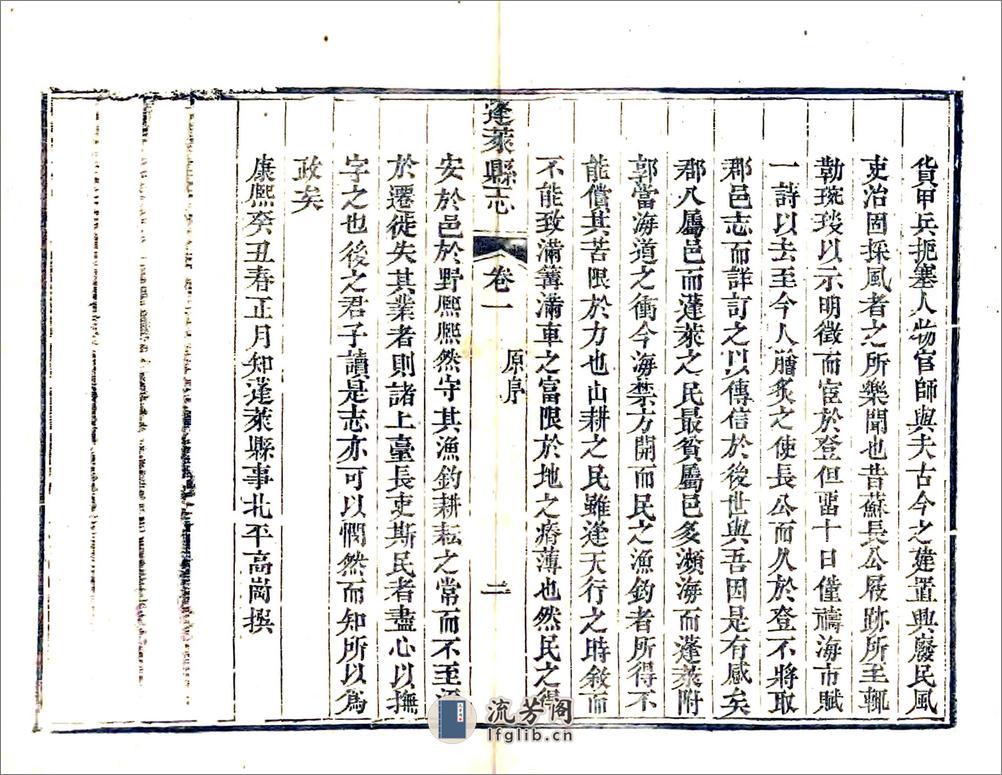 貨甲兵扼塞人物官師與夫古今之建置興廢民風
吏治固採風者之所樂聞也昔蘇長公屐跡所至輒
勒琬琰以示明徵而宦於登但畱十日僅禱海市賦
一詩以去至今人膾炙之使長公而久於登不將取
郡邑志而詳訂之以傳信於後世與吾因是有感矣
郡八屬邑而蓬萊之民最貧屬邑多瀕海而蓬萊附
郭當海道之衝今海禁方開而民之漁釣者所得不
能償其苦限於力也山耕之民雖逢天行之時敘而
不能致滿篝滿車之富限於地之瘠薄也然民之得
蓬萊縣志
卷一
原序
二
安於邑於野熙熙然守其漁釣耕耘之常而不至
於遷徙失其業者則諸上臺長吏斯民者盡心以撫
字之也後之君子讀是志亦可以憪然而知所以為
政矣
康熙癸丑春正月知蓬萊縣事北平高崗撰
流芳阁
lfglib.cn